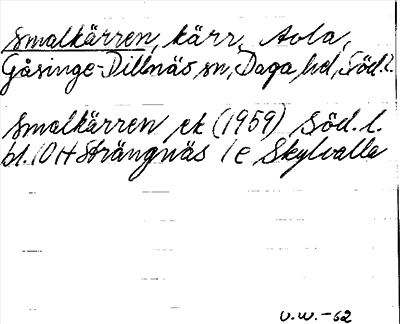 Smalkärren, kärr, Aola,
Gåsinge-Dillnäs sn, Daga hd, Söd.l.
Smalkärren ek (1959) Söd. l.
bl. 10 H Strängnäs 1 e Skylvalla
U.W.-62